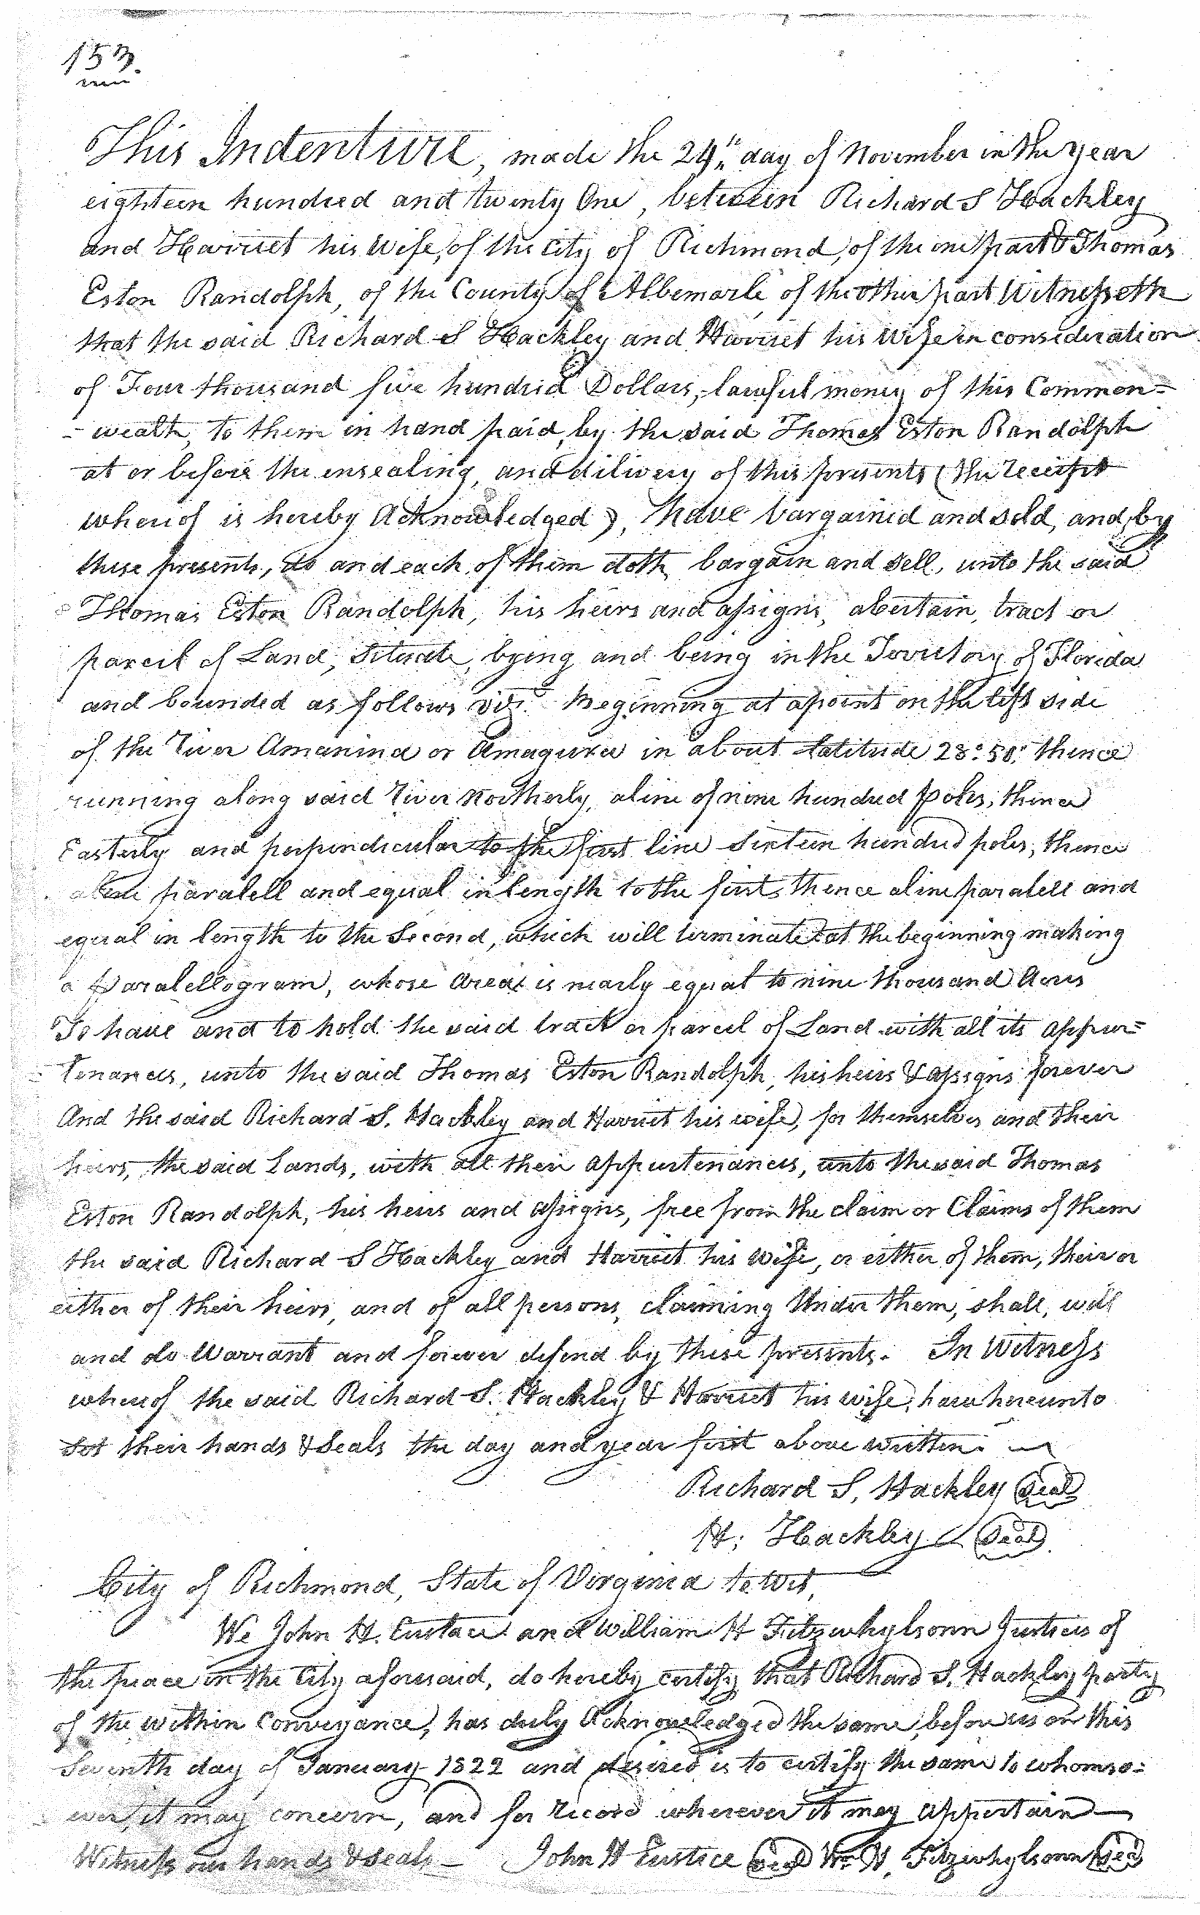 153.
This Indenture, made the 24th day of November in the year
eighteen hundred and twenty One, between Richard S Hackley
and Harriet his Wife, of the City of Richmond, of the one part & Thomas
Eston Randolph, of the County of Albemarle, of the other part Witnesseth
that the said Richard S Hackley and Harriet his Wife in consideration
of Four thousand five hundred Dollars, lawful money of this Common=
=wealth, to them in hand paid, by the said Thomas Eston Randolph
at or before the ensealing, and dilivery of this presents (the receipt
whereof is hereby Acknowledged), have bargained and sold, and by
these presents, do and each of them doth, bargain and sell, unto the said
Thomas Eston Randolph, his heirs and assigns, a Certain, tract or
parcel of Land, Situate, lying and being in the Territory of Florida
and bounded as follows viz. Beginning at a point on the left side
of the River Amanina or Amagura in about latitude 28° 50' thence
running along said River Northerly, a line of nine hundred poles, thence
Easterly and perpendicular to the first line Sixteen hundred poles, thence
a line paralell and equal in length to the first, thence a line paralell and
equal in length to the Second, which will terminate at the beginning making
a paralellogram, whose area is nearly equal to nine thousand Acres
To have and to hold the said tract or parcel of Land with all its appur=
=tenances, unto the said Thomas Eston Randolph, his heirs & assigns forever
And the said Richard S. Hackley and Harriet his wife, for themselves and their
heirs, the said Lands, with all their appurtenances, unto the said Thomas
Eston Randolph, his heirs and assigns, free from the claim or Claims of them
the said Richard S Hackley and Harriet his Wife, or either of them, their or
either of their heirs, and of all persons, claiming Under them, shall, will
and do Warrant and forever defend by these presents. In Witness
whereof the said Richard S. Hackley & Harriet his wife, have hereunto
Set their hands & Seals the day and year first above written.
Richard S. Hackley Seal
H; Hackley Seal
City of Richmond, State of Virginia to Wit,
We John H. Eustace and William H Fitzwhylsonn Justices of
the peace in the City aforesaid, do hereby certify that Richard S. Hackley party
of the within Conveyance, has duly Acknowledged the same, before us on this
Seventh day of January 1822 and desired is to certify the same to whomso=
ever, it may concern, and for record wherever it may appertain
Witness our hands & seals John H Eustice Seal Wm H, Fitzwhylsonn Seal